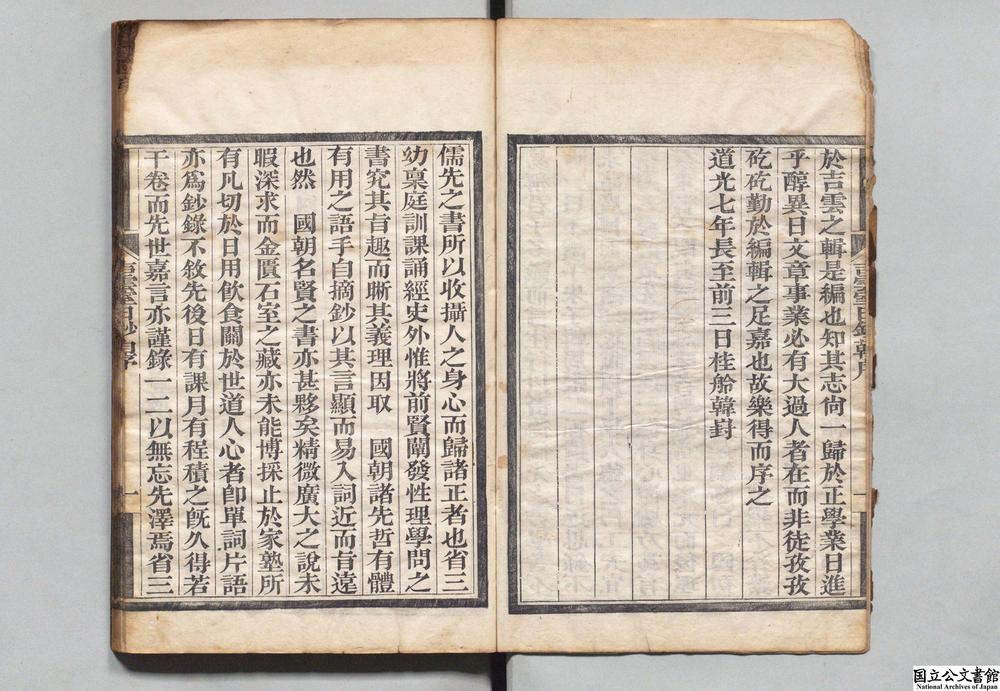 於吉雲之輯是編也知其志尙一歸於正學業日進
乎醇異日文章事業必有大過人者在而非徒孜孜
矻矻勤於編輯之足嘉也故樂得而序之
道光七年長至前三日桂舲韓封
儒先之書所以收攝人之身心而歸諸正者也省三
幼稟庭訓課誦經史外惟將前賢闡發性理學問之
書究其旨趣而晰其義理因取 國朝諸先哲有體
有用之語手自摘鈔以其言顯而易入詞近而旨遠
也然 國朝名賢之書亦甚夥矣精微廣大之說未
暇深求而金匱石室之藏亦未能博採止於家塾所
有凡切於日用飮食關於世道人心者卽單詞片語
亦爲鈔錄不敘先後日有課月有程積之旣久得若
干卷而先世嘉言亦謹錄一二以無忘先澤焉省三
一
国立公文書館
National Archives of Japan